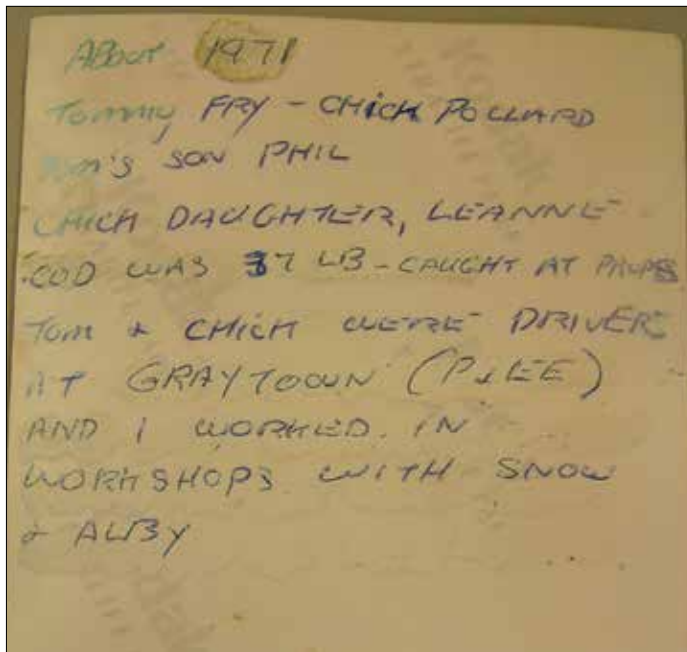 ABOUT 1971
TOMMY FRY - CHICK POLLARD
TOM'S SON PHIL
CHICK DAUGHTER, LEANNE
COD WAS 37 LB - CAUGHT AT
TOM & CHICK WERE DRIVERS
AT GRAYTOWN (P&EE)
AND I WORKED. IN
WORKSHOPS WITH SNOW
& ALBY